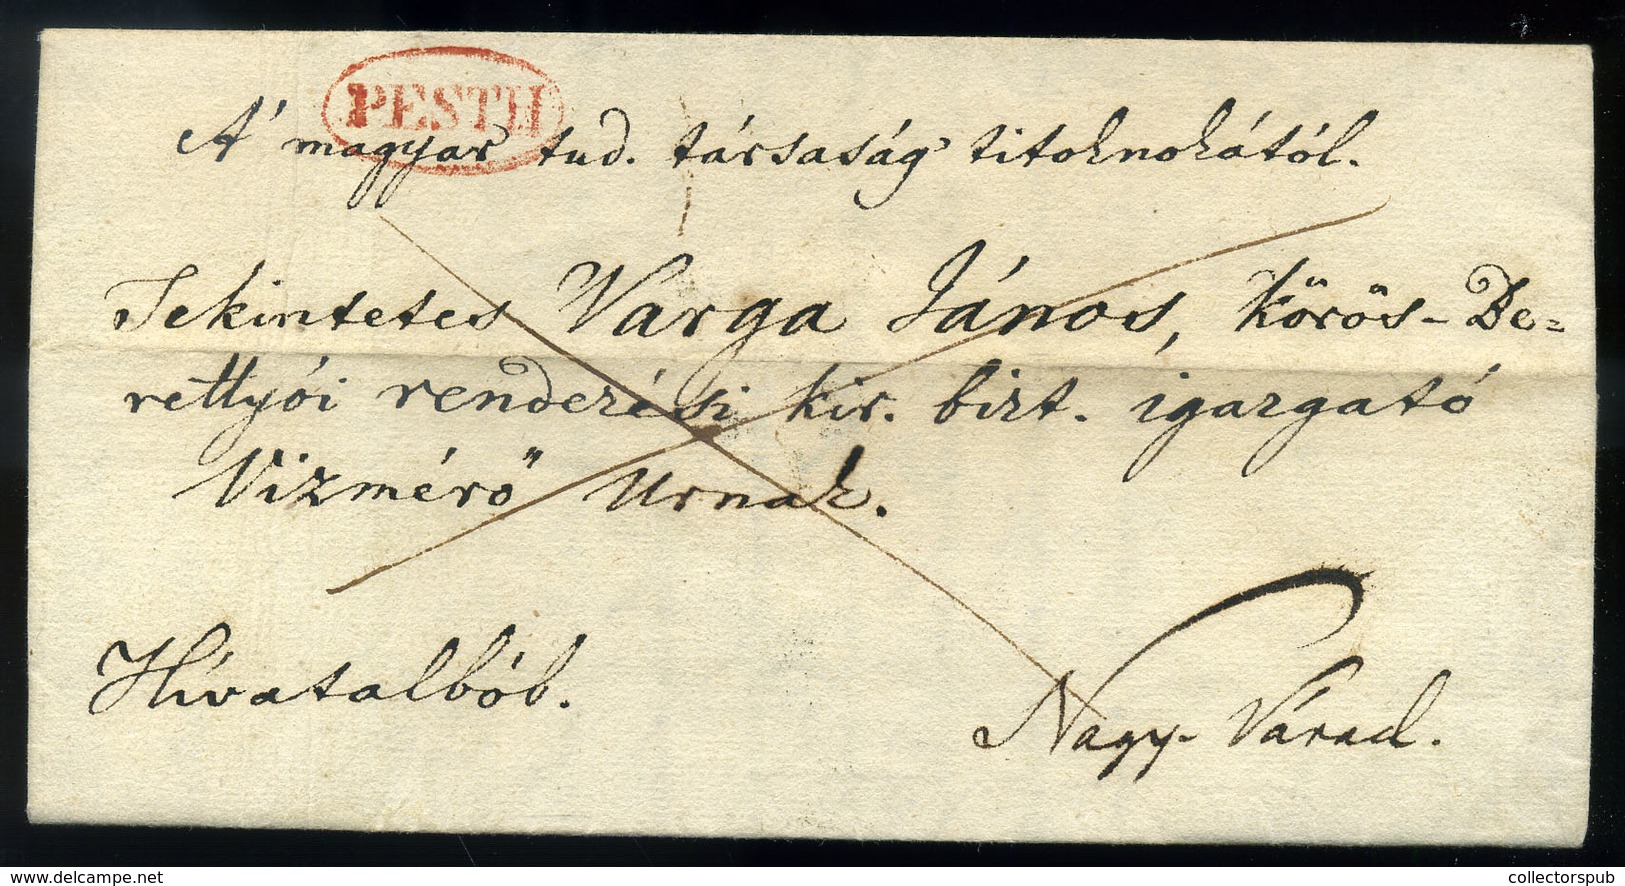 PESTH
A' magyar tud. társaság' titoknokától.
Tekintetes Varga János, Körös-Be=
rettyói rendezési kir. bizt. igazgató
Vizmérő Urnak.
Hívatalból.
Nagy-Várad.
www.delcampe.net
collectorspub